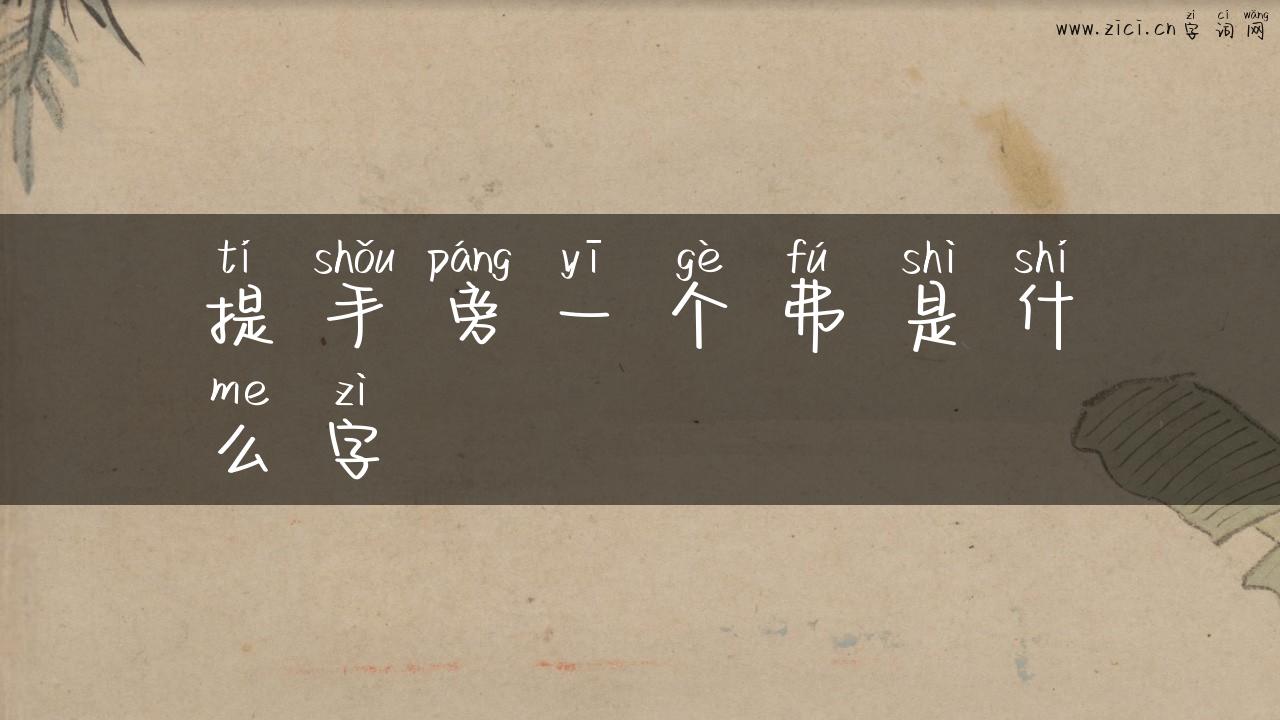 zì cí wǎng
www.zici.cn 字 词 网
tí shǒu páng yī gè fú shì shí
提 手 旁 一 个 弗 是 什
me zì
么 字